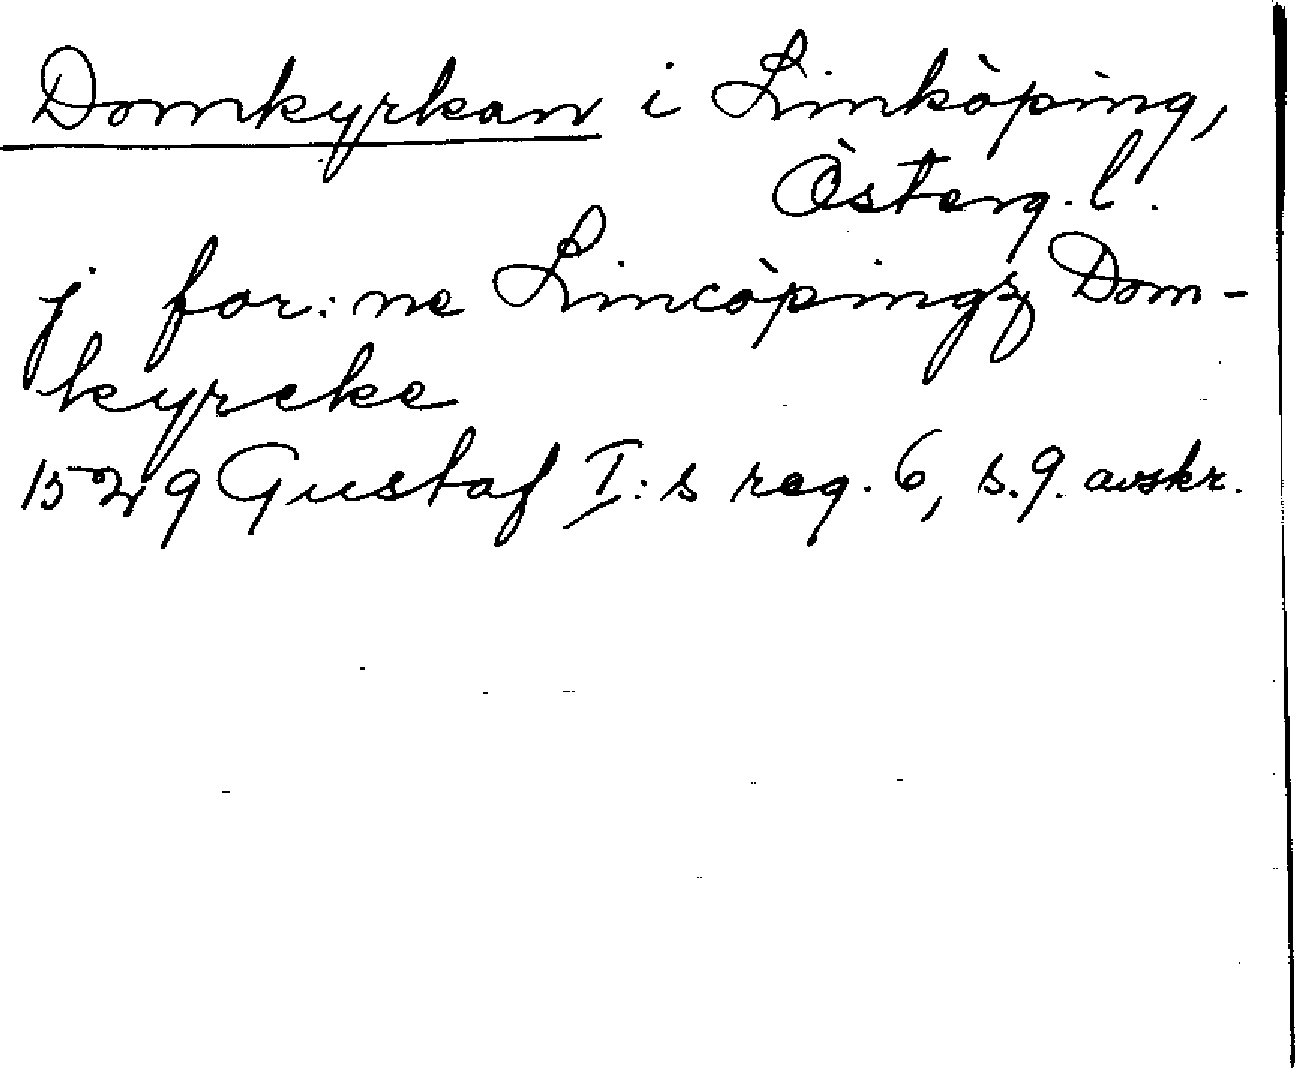 Domkyrkan i Linköping,
Österg. l.
j for:ne Lincöpingz Dom-
kyrcke
1529 Gustaf I:s reg. 6, s. 9. avskr.